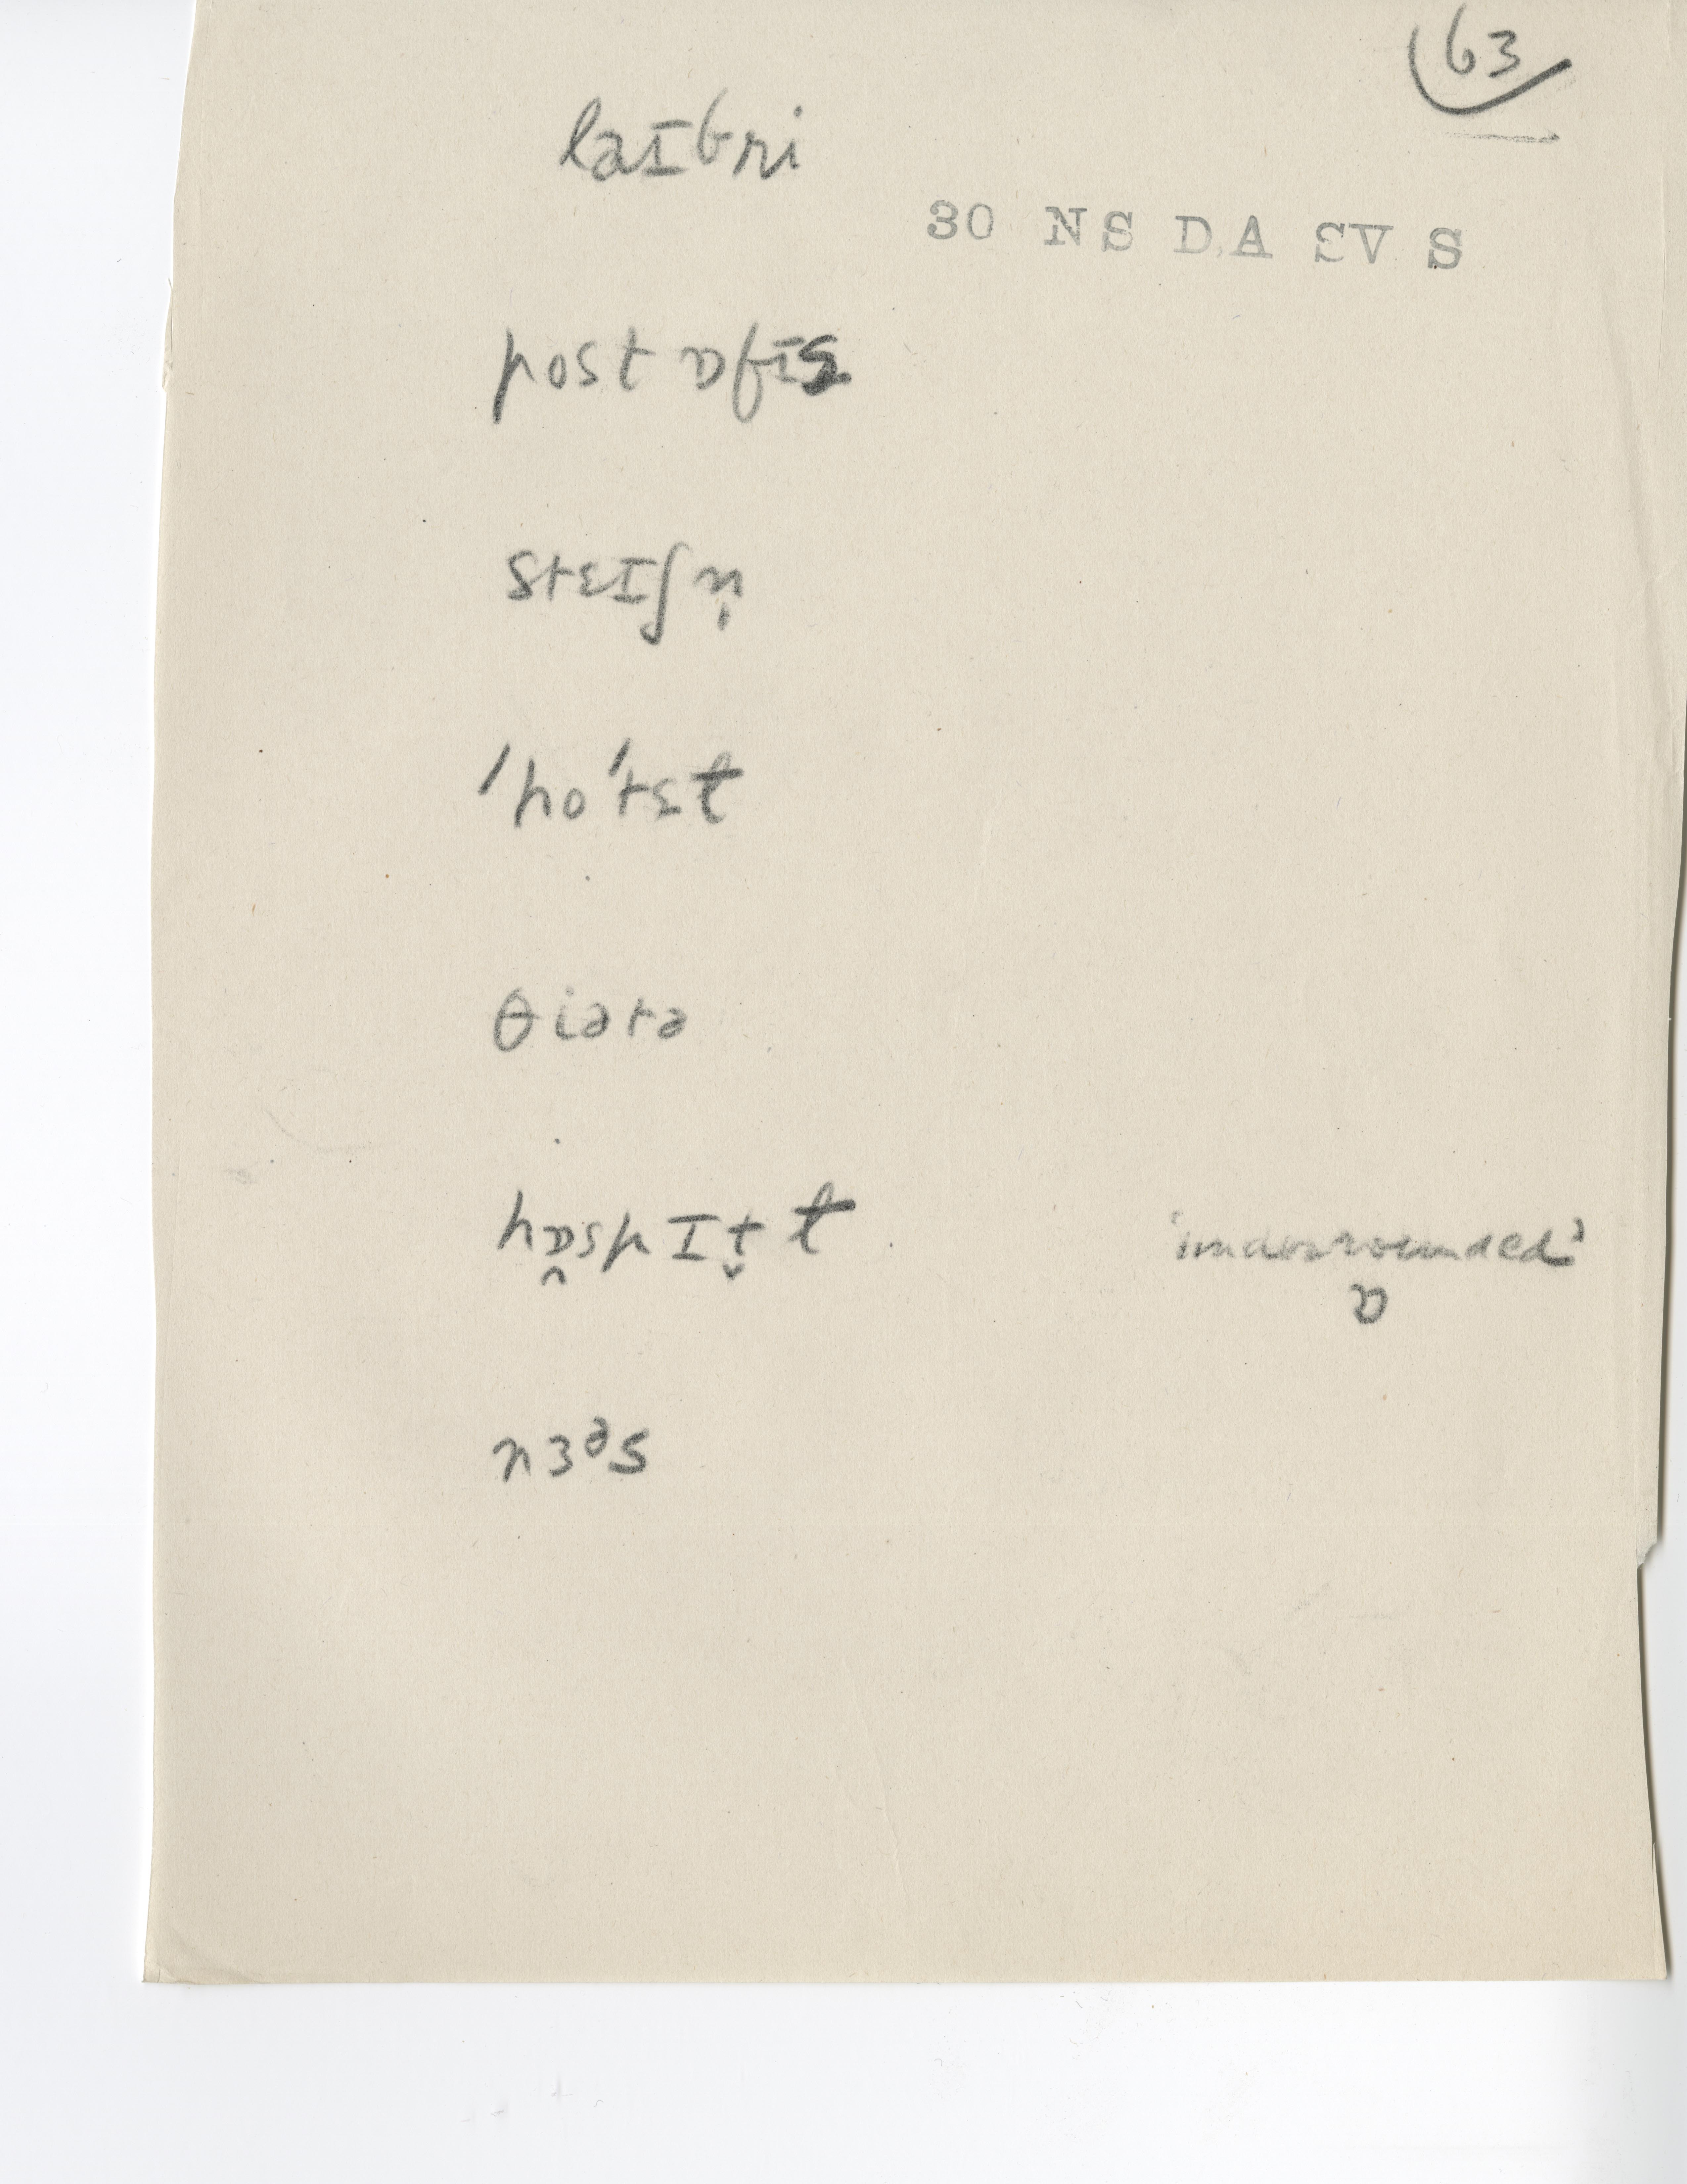 63
laɪbri
30 NS DA SV S
post ɒfɪs
stɛɪʃn̩
'ho'tɛɫ
θiətə
hɒ̭spɪt̬ ɫ 'underrounded'
ɒ
nɜᵊs